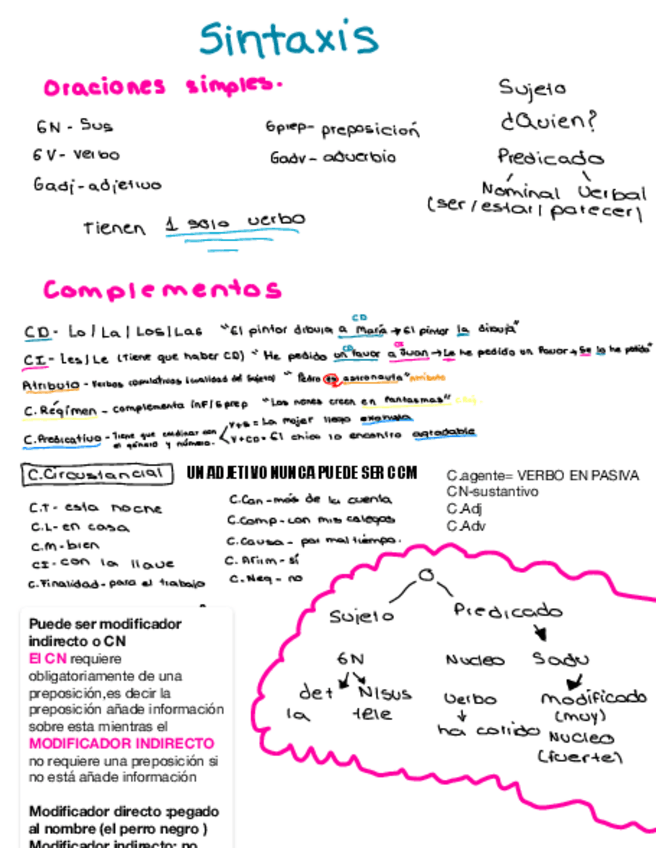 Sintaxis
Oraciones simples.
GN - Sus
GV - verbo
Gadj - adjetivo
Gprep - preposición
Gadv - adverbio
Tienen 1 solo verbo
Sujeto
¿Quien?
Predicado
Nominal Verbal
(ser/estar/parecer)
Complementos
CD
CD - Lo / La / Los / Las "El pintor dibuja a María → El pintor la dibuja"
CD CI
CI - Les / Le (tiene que haber CD) "He pedido un favor a Juan → Le he pedido un favor → Se lo he pedido"
Atributo - verbos copulativos (cualidad del sujeto) "Pedro es astronauta" atributo
C. Régimen - complementa inf/Gprep "Los nenes creen en fantasmas"
C. Predicativo - Tiene que coincidir con en género y número.
V+S = La mujer llego exausta
V+CD = El chico lo encontro agradable
C. Circustancial
UN ADJETIVO NUNCA PUEDE SER CCM
C.T - esta noche
C.L - en casa
C.M - bien
CI - con la llave
C. Finalidad - para el trabajo
C. Can - más de la cuenta
C. Comp - con mis colegas
C. Causa - por mal tiempo.
C. Afirm - sí
C. Neg - no
C.agente= VERBO EN PASIVA
CN-sustantivo
C.Adj
C.Adv
O
Sujeto Predicado
GN Nucleo Sadv
det N/sus verbo modificado
la tele ha corrido (muy)
Nucleo
(fuerte)
Puede ser modificador
indirecto o CN
El CN requiere
obligatoriamente de una
preposición,es decir la
preposición añade información
sobre esta mientras el
MODIFICADOR INDIRECTO
no requiere una preposición si
no está añade información
Modificador directo :pegado
al nombre (el perro negro )
Modificador indirecto: no